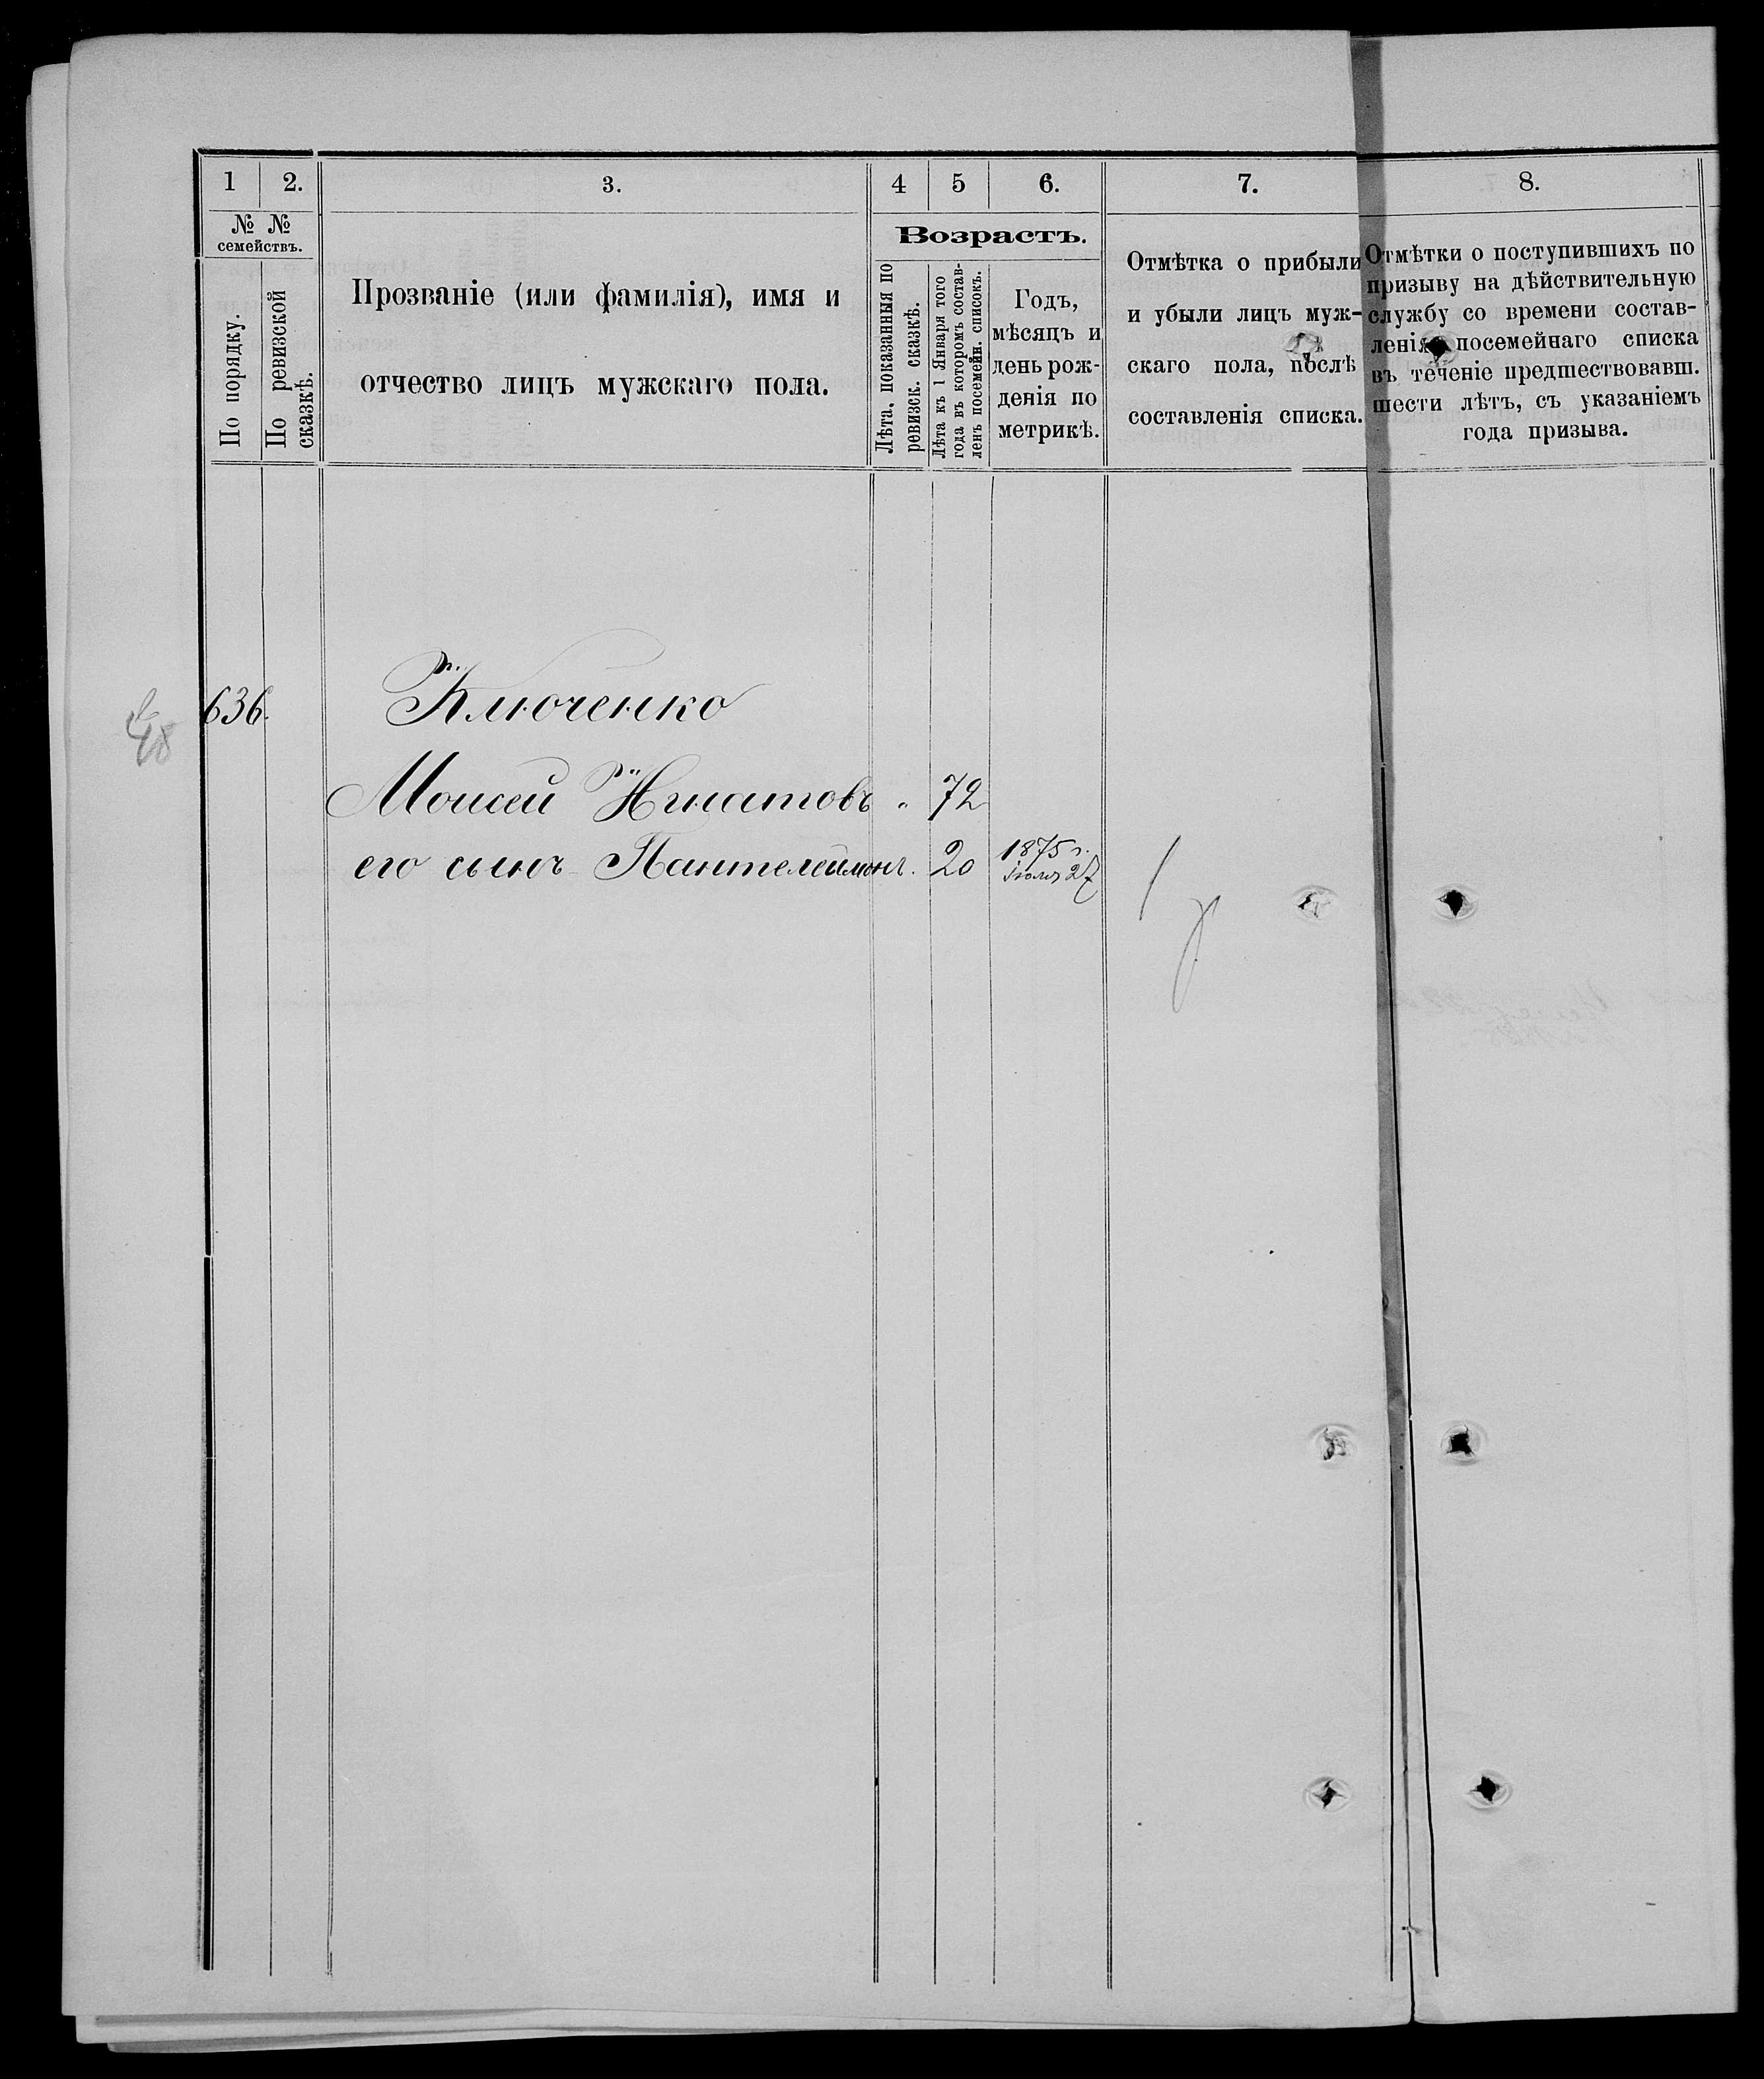 1 2. 3. 4 5 6. 7. 8.
№ №
семействъ.
По порядку.
По ревизской
сказкѣ.
Прозваніе (или фамилія), имя и
отчество лицъ мужскаго пола.
Возрастъ.
Лѣта, показанныя по
ревизск. сказкѣ.
Лѣта къ 1 Января того
года въ которомъ состав-
ленъ посемейн. списокъ.
Годъ,
мѣсяцъ и
день рож-
денія по
метрикѣ.
Отмѣтка о прибыли
и убыли лицъ муж-
скаго пола, послѣ
составленія списка.
Отмѣтки о поступившихъ по
призыву на дѣйствительную
службу со времени состав-
ленія посемейнаго списка
въ теченіе предшествовавш.
шести лѣтъ, съ указаніемъ
года призыва.
636. Ключенко
Моисей Игнатовъ " 72
его сынъ Пантелеймонъ. 20 1875 г.
Іюля 27